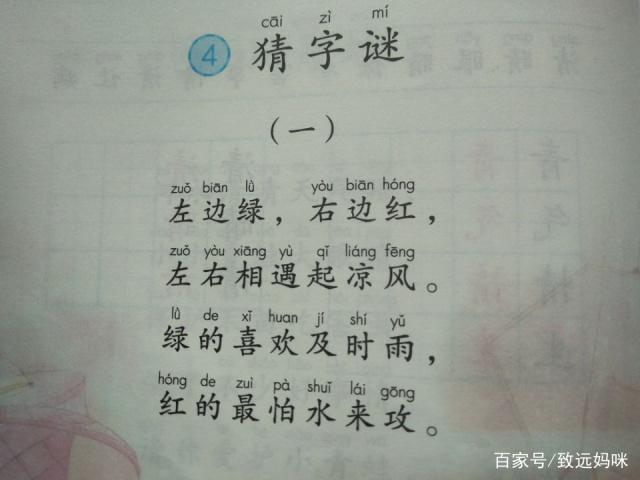 cāi zì mí
4 猜字谜
（一）
zuǒ biān lǜ yòu biān hóng
左边绿，右边红，
zuǒ yòu xiāng yù qǐ liáng fēng
左右相遇起凉风。
lǜ de xǐ huan jí shí yǔ
绿的喜欢及时雨，
hóng de zuì pà shuǐ lái gōng
红的最怕水来攻。
百家号/致远妈咪